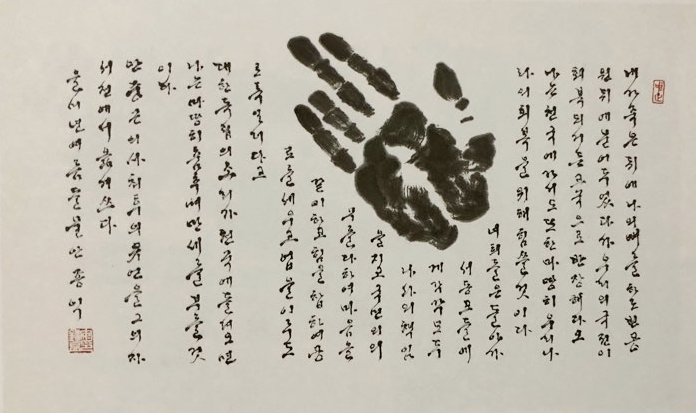 내가 죽은 뒤에 나의 뼈를 하르빈 공
원 뒤에 묻어 두었다가 우리의 국권이
회복되거든 고국으로 반장해다오
나는 천국에 가서도 또한 마땅히 우리나
라의 회복을 위해 힘쓸 것이다
너희들은 돌아가
서 동포들에
게 각각 모두
나라의 책임
을 지고 국민의 의
무를 다하여 마음을
같이하고 힘을 합하여 공
로를 세우고 업을 이루도
록 일러다고
대한독립의 소리가 천국에 들려오면
나는 마땅히 춤추며 만세를 부를 것
이다
안중근 의사 최후의 유언을 그의 자
서전에서 옮겨쓰다
여름